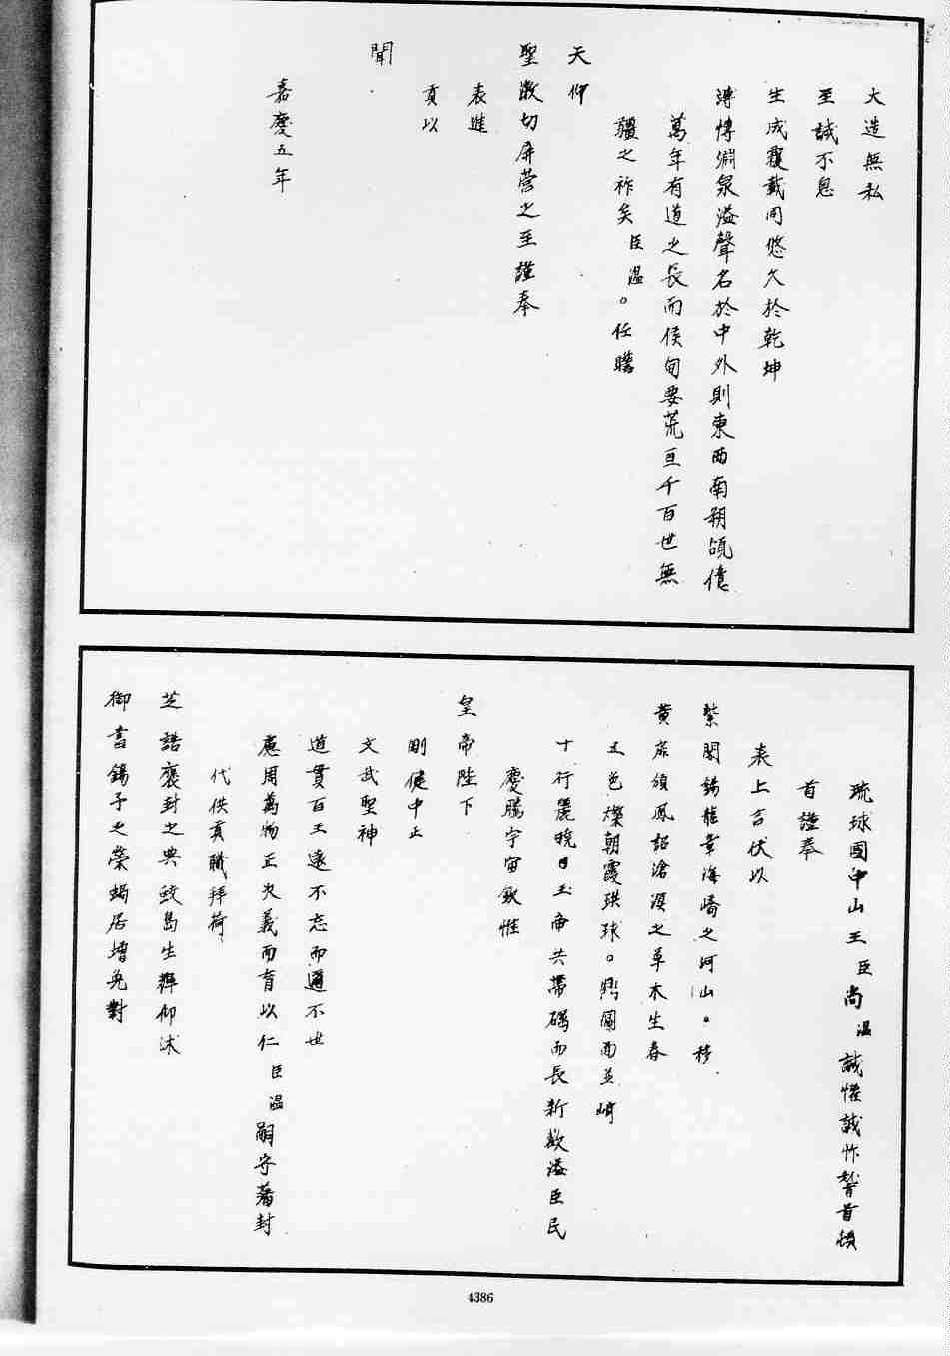 大造無私
至誠不息
生成覆載同悠久於乾坤
溥博淵泉溢聲名於中外則東西南朔頌億
萬年有道之長而侯甸要荒亘千百世無
疆之祚矣臣溫。任瞻
天仰
聖激切屏營之至謹奉
表進
貢以
聞
嘉慶五年
琉球國中山王臣尚溫誠惶誠忭稽首頓
首謹奉
表上言伏以
紫閣錫龍章海嶠之河山。移
黄扉頒鳳詔滄溟之草木生春
五色燦朝霞珙球。鼎圖而並峙
十行麗曉日玉帛共帶礪而長新歡溢臣民
慶騰宇宙欽惟
皇帝陛下
剛健中正
文武聖神
道貫百王遠不忘而邇不泄
應周萬物正夾義而育以仁臣溫嗣守藩封
代供貢職拜荷
芝誥褒封之典蛟島生輝仰沐
御書錫予之榮蝸居增色對
4386